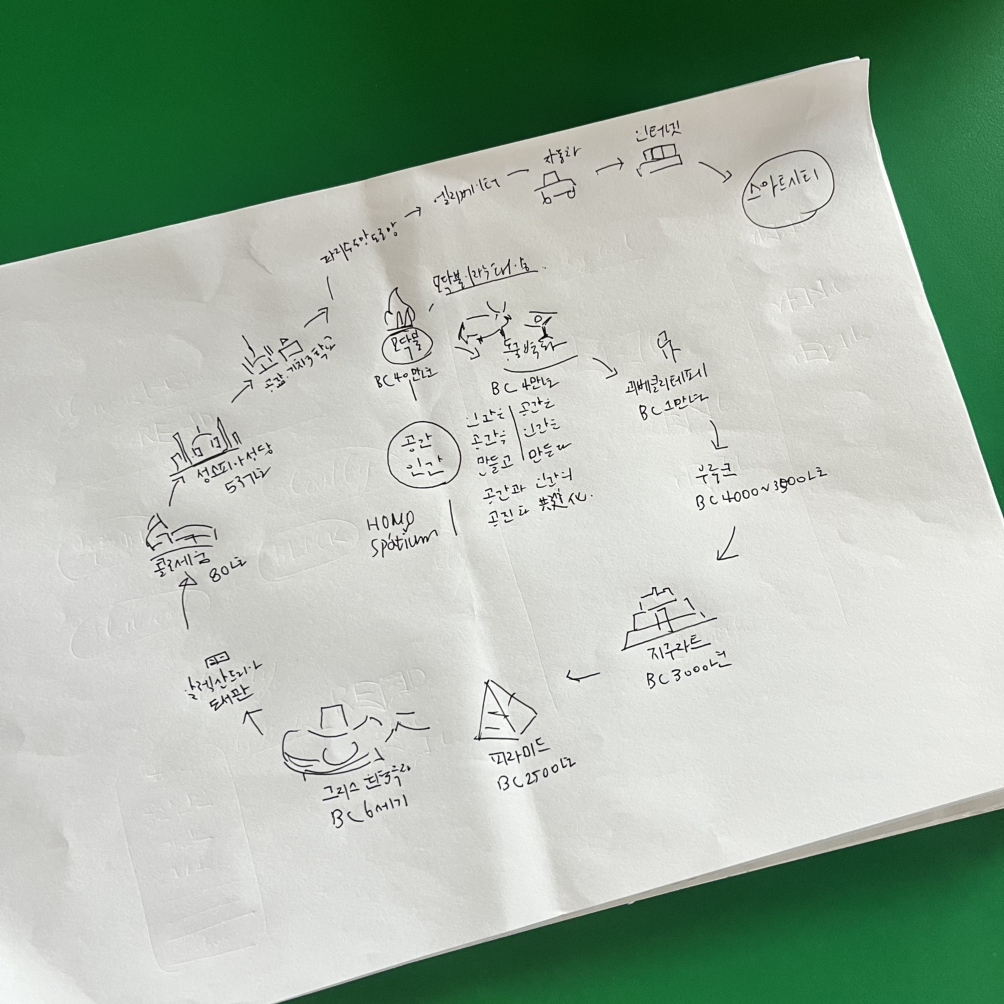 모닥불
BC 40만년
동굴벽화
BC 4만년
괴베클리테페
BC 1만년
우루크
BC 4000~3500년
지구라트
BC 3000년
피라미드
BC 2500년
그리스
BC 6세기
알렉산드리아
도서관
콜로세움
80년
성소피아성당
537년
파리
엘리베이터
자동차
인터넷
스마트시티
공간
인간
HOMO
Spatium
인간은
공간을
만들고
공간은
인간을
만든다
공간과 인간의
공진화 共進化.